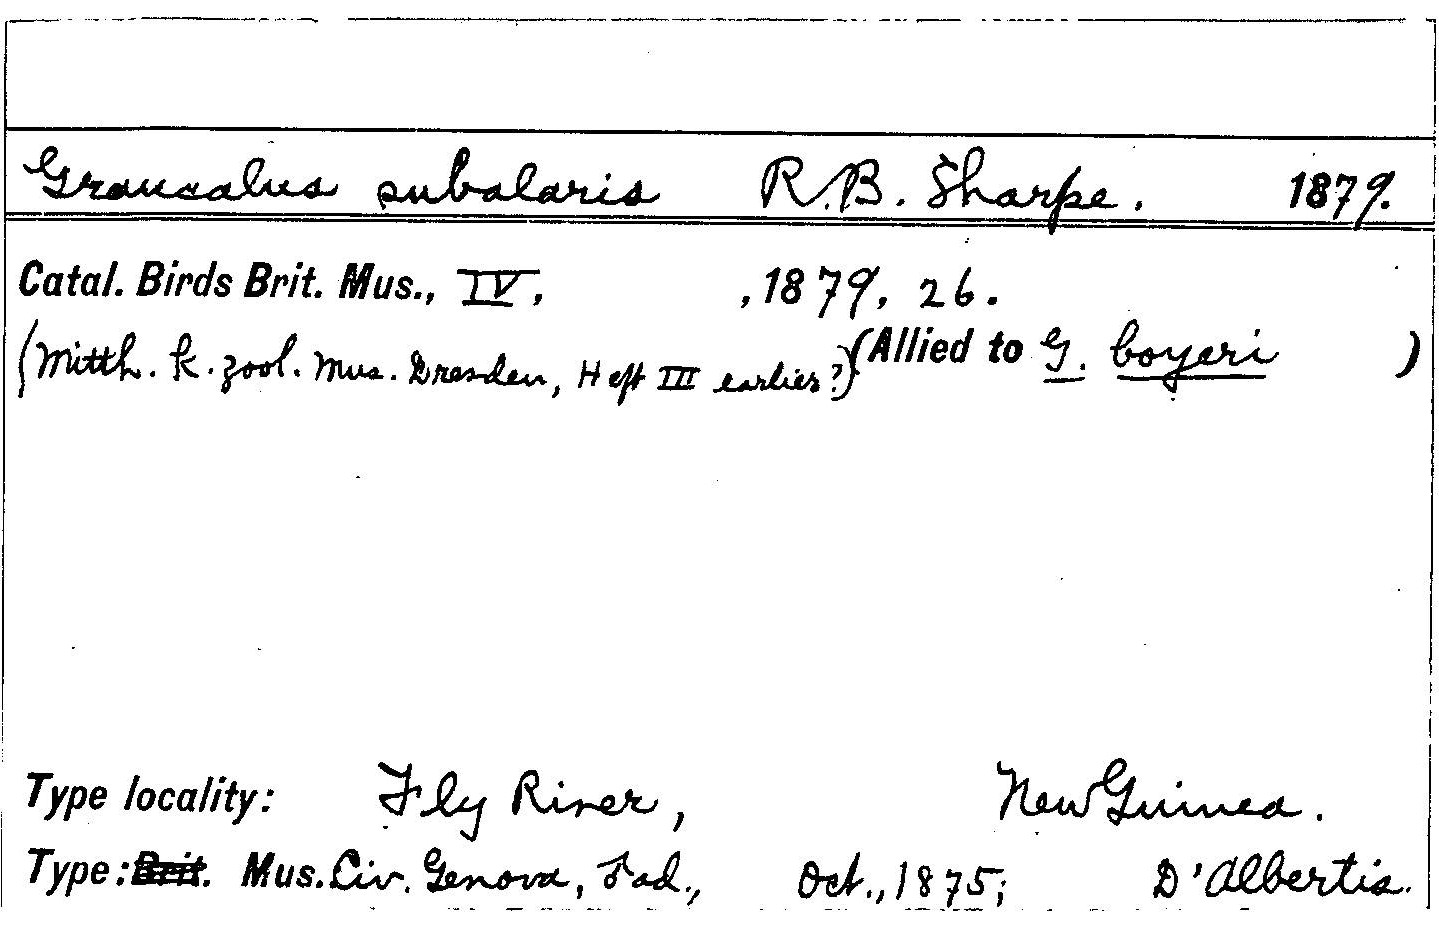 Graucalus subalaris R.B. Sharpe. 1879.
Catal. Birds Brit. Mus., IV, , 1879, 26.
(Mitth. k. zool. Mus. Dresden, Heft III earlier?) (Allied to G. boyeri )
Type locality: Fly River, New Guinea.
Type: Brit. Mus. Civ. Genova, Fad., Oct., 1875; D'Albertis.